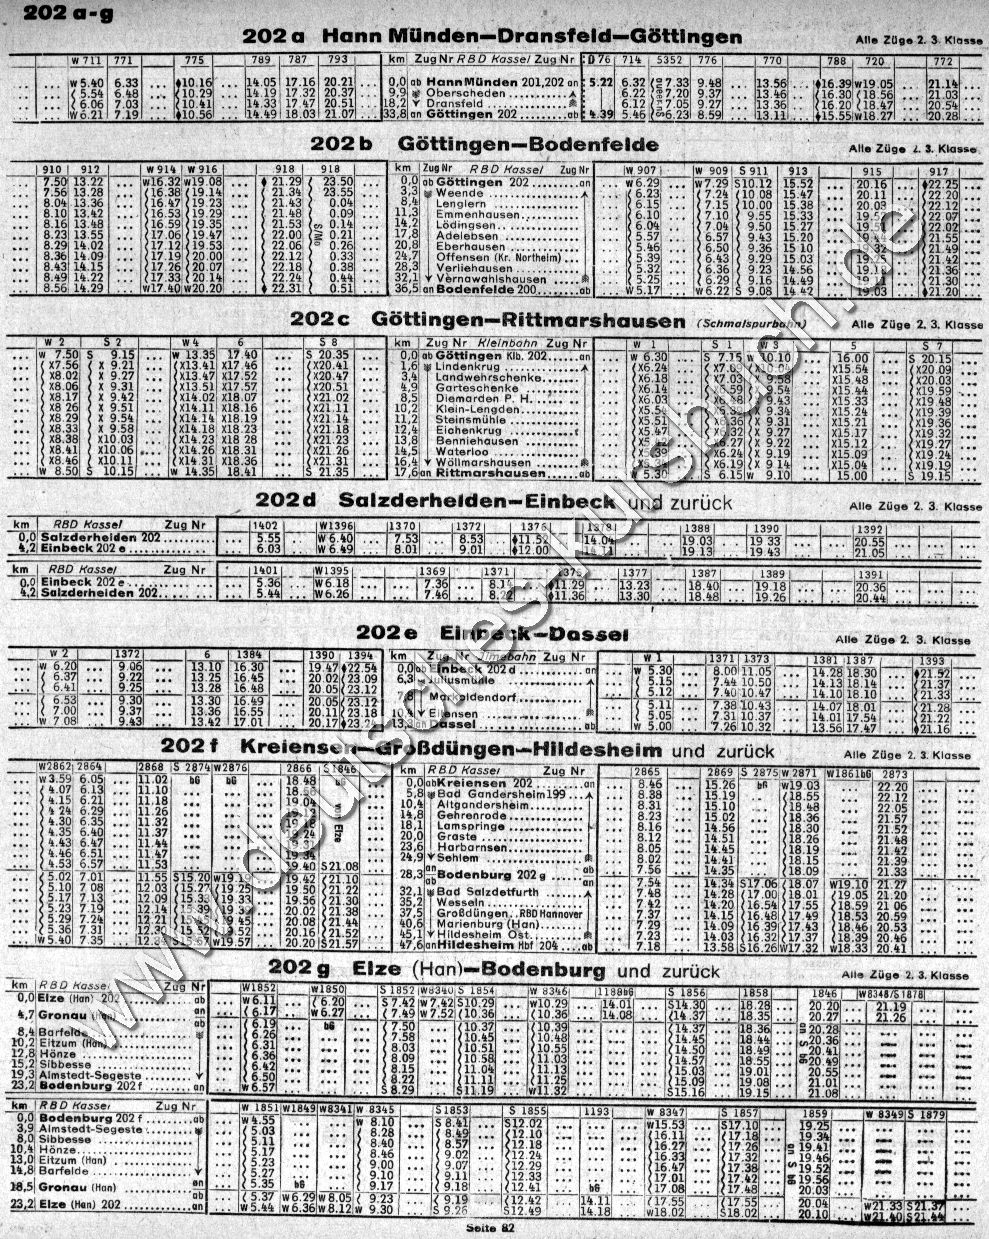 202 a-g
202 a Hann Münden—Dransfeld—Göttingen Alle Züge 2. 3. Klasse
W 711 771 775 789 787 793 km Zug Nr RBD Kassel Zug Nr D 76 714 5352 776 770 788 720 772
W 5.40 6.33 10.16 14.05 17.16 20.21 0,0 ab Hann Münden 201,202 an 5.22 6.32 7.33 9.48 13.56 16.39 W19.05 21.14
5.54 6.48 10.29 14.19 17.32 20.37 9,9 Oberscheden 6.22 7.20 9.37 13.46 16.30 18.56 21.03
6.06 7.03 10.41 14.33 17.47 20.51 18,2 Dransfeld 6.12 7.05 9.27 13.36 16.20 18.47 20.54
W 6.21 7.19 10.56 14.49 18.03 21.07 33,8 an Göttingen 202 ab 4.39 5.46 6.23 8.59 13.11 15.55 W18.27 20.28
202 b Göttingen—Bodenfelde Alle Züge 2. 3. Klasse
910 912 W 914 W 916 918 918 km Zug Nr RBD Kassel Zug Nr W 907 W 909 S 911 913 915 917
7.50 13.22 W16.32 W19.08 21.29 23.50 0,0 ab Göttingen 202 an W 6.29 W 7.29 S10.17 15.52 20.16 W22.25
7.56 13.28 16.38 19.14 21.34 23.55 3,3 Weende 6.23 7.21 10.08 15.47 20.11 22.20
8.04 13.36 16.47 19.23 21.43 0.04 8,4 Lenglern 6.15 7.15 10.00 15.38 20.03 22.12
8.10 13.42 16.53 19.29 21.48 0.09 11,3 Emmenhausen 6.10 7.10 9.55 15.33 22.07
8.16 13.48 16.59 19.35 21.53 0.14 14,2 Lödingsen 6.04 7.04 9.50 15.27 19.51 22.02
8.23 13.55 17.06 19.47 22.00 0.21 17,8 Adelebsen 5.57 6.57 9.43 15.20 21.55
8.29 14.02 17.12 19.53 22.06 0.26 20,8 Eberhausen 5.46 6.50 9.36 15.10 21.49
8.36 14.09 17.19 20.00 22.12 0.33 24,7 Offensen (Kr. Northeim) 5.39 6.43 9.29 15.03 21.42
8.43 14.15 17.26 20.07 22.18 0.38 28,3 Verliehausen 5.32 6.36 9.23 14.56 21.36
8.49 14.22 17.33 20.14 22.24 0.44 32,1 Vernawahlshausen 5.25 6.29 9.16 14.49 21.30
8.56 14.29 W17.40 W20.20 22.31 0.51 36,5 an Bodenfelde 200 ab W 5.17 W 6.22 S 9.08 14.42 19.03 21.20
202 c Göttingen—Rittmarshausen (Schmalspurbahn) Alle Züge 2. 3. Klasse
W 2 S 2 W 4 6 S 8 km Zug Nr Kleinbahn Zug Nr W 1 S 1 W 3 5 S 7
W 7.50 S 9.15 W 13.35 17.40 S 20.35 0,0 ab Göttingen Klb. 202 an W 6.30 S 7.15 W 10.10 16.00 S 20.15
X7.56 X 9.21 X13.41 X17.46 X20.41 1,6 Lindenkrug X6.24 X10.04 X15.54 X20.09
X8.02 X 9.27 X13.47 X17.52 X20.47 3,4 Landwehrschenke X6.18 X7.03 X 9.58 X15.48 X20.03
X8.06 X 9.31 X13.51 X17.57 X20.51 4,9 Garteschenke X6.14 X6.59 X 9.54 X15.44 X19.59
X8.17 X 9.42 X14.02 X18.07 X21.02 8,5 Diemarden P. H. X6.03 X 9.43 X15.33 X19.48
X8.26 X 9.51 X14.11 X18.16 X21.11 10,2 Klein-Lengden X 9.34 X15.24 X19.39
X8.29 X 9.54 X14.14 X18.19 X21.14 11,2 Steinsmühle X 9.31 X15.21 X19.36
X8.33 X 9.58 X14.18 X18.23 X21.18 12,4 Eichenkrug X5.47 X6.32 X 9.27 X15.17 X19.32
X8.38 X10.03 X14.23 X18 28 X21.23 13,8 Benniehausen X6.27 X 9.22 X15.12 X19.27
X8.41 X10.06 X14.26 X18.31 X21.26 14,5 Waterloo X6.24 X 9.19 X15.09 X19.24
X8.46 X10.11 X14.31 X18.36 X21.31 16,4 Wöllmarshausen X6.19 X 9 14 X15.04 X19.19
W 8.50 S 10.15 W 14.35 18.41 S 21.35 17,6 an Rittmarshausen ab W 5.30 S 6.15 W 9.10 15.00 S 19.15
202 d Salzderhelden—Einbeck und zurück Alle Züge 2. 3. Klasse
km RBD Kassel Zug Nr 1402 W1396 1370 1372 1376 1378 1388 1390 1392
0,0 Salzderhelden 202 5.55 W 6.40 7.53 8.53 11.52 14.04 19.03 19 33 20.55
4,2 Einbeck 202 e 6.03 W 6.49 8.01 9.01 12.00 19.13 19 43 21.05
km RBD Kassel Zug Nr 1401 W1395 1369 1371 1375 1377 1387 1389 1391
0,0 Einbeck 202 e 5.36 W 6.18 7.36 8.14 11.29 13.23 18.40 19.18 20.36
4,2 Salzderhelden 202 5.44 W 6.26 7.46 8.22 11.36 13.30 18.48 19.26 20.44
202 e Einbeck—Dassel Alle Züge 2. 3. Klasse
W 2 1372 6 1384 1390 1394 km Zug Nr Ilmebahn Zug Nr W 1 1371 1373 1381 1387 1393
W 6.20 9.06 13.10 16.30 19.47 22.54 0,0 ab Einbeck 202 d an W 5.30 8.00 11.05 14.28 18.30 21.52
6.37 9.22 13.25 16.45 20 02 23.09 6,3 Juliusmühle 5.15 7.44 10.50 14.13 18.14 21.37
6.41 9.25 13.28 16.48 20.05 23.12 7,8 Markoldendorf 5.12 7.40 10.47 14.10 18.10 21.33
6.53 9.30 13.30 16.49 20.05 23.12 5.11 7.38 10.43 14.07 18.01 21.28
7.00 9.37 13.36 16.55 20.11 23.18 10,4 Eilensen 5.05 7.31 10.37 14.01 17.54 21.22
W 7 08 9.43 13.42 17.01 20.17 13,3 an Dassel ab W 5.00 7.26 10.32 13.56 17.47 21.16
202 f Kreiensen—Großdüngen—Hildesheim und zurück Alle Züge 2. 3. Klasse
W2862 2864 2868 S 2874 W2876 2866 S1846 km RBD Kassel Zug Nr 2865 2869 S 2875 W2871 W1861bG 2873
W 3.59 6.05 11.02 bG 18.48 bG 0,0 ab Kreiensen 202 an 8.46 15.26 bG W19.03 22.20
4.07 6.13 11.10 5,8 Bad Gandersheim 199 8.38 15.19 18.55 22.12
4.15 6.21 11.18 19.04 10,4 Altgandersheim 8.31 15.10 18.48 22.05
4 24 6.29 11.26 14,8 Gehrenrode 8.23 15.02 18.36 21.57
4.30 6.35 11.32 18,1 Lamspringe 8.16 14.56 18.30 21.52
4.35 6.40 11.37 20,0 Graste 8.12 14.51 18.26 21.48
4.43 6.47 11.44 23,6 Harbarnsen 8.05 14.45 18.19 21.42
4.46 6.51 11.47 24,9 Sehlem 8.02 14.41 18.15 21.39
4.53 6.57 11.53 19 40 S21.08 28,3 an Bodenburg 202 g 7.56 14.35 18.09 21.33
5.02 7.01 11.55 S15.20 W19.19 19.42 21.10 ab 7.54 14.34 S17.06 18.07 W19.10 21.27
5.10 7.08 12.03 15.27 19.25 19.50 21.22 32,1 Bad Salzdetfurth 7.48 14.28 17.00 18.01 19.05 21.20
5.17 7.13 12.09 15.33 19.33 19.56 21.30 35,2 Wesseln 7.42 14.20 16.54 17.55 18.59 21 06
5.23 7.19 12.14 15.39 20.02 21.38 37,5 Großdüngen RBD Hannover 7.37 14.15 16.48 17.49 18.53 20.59
5.29 7.24 12.21 19.45 20.08 21.44 40,6 Marienburg (Han) 7.29 14.09 16.39 17.43 18.46 20.53
5.36 7.31 12.30 15.52 19.52 20.16 21.52 45,1 Hildesheim Ost. 7.23 14.03 16.32 17.37 18.39 20.46
W 5.40 7.35 W19.57 20.20 S21.57 47,6 an Hildesheim Hbf 204 ab 7.18 13.58 S16.26 W17.32 W18.33 20.41
202 g Elze (Han)—Bodenburg und zurück Alle Züge 2. 3. Klasse
km RBD Kassel Zug Nr W1852 W1850 S 1852 W8340 S 1854 W 8346 1188bG S 1856 1858 1846 W8348/S1878
0,0 Elze (Han) 202 ab W 6.11 6.20 S 7.42 W 7.42 S10.29 W10.29 14.01 S14.30 18.28 20.20 21.19
4,7 Gronau (Han) an 6.17 W 6.27 7.49 W 7.52 10.36 10.36 14.08 14.37 18.35 20.27 21.26
ab 6.19 bG 7.50 10.37 10.39 14.37 18.36 20.28
8,4 Barfelde 6.26 7.58 10.45 10.48 14.45 18.44 20.36
10,2 Eitzum (Han) 6.31 8.03 10.51 10.55 14.50 18.49 20.41
12,8 Hönze 6.36 8.09 10.58 11.03 14.57 18.55 20.49
15,2 Sibbesse 6.42 8.15 11.04 11.13 15.03 19.01 20.55
19,3 Almstedt-Segeste 6.50 8.22 11.11 11.25 15.09 19.08 21.01
23,2 Bodenburg 202 f an W 6.57 S 8.29 S11.19 W11.32 S15.16 19.15 21.08
km RBD Kassel Zug Nr W 1851 W1849 W8341 W 8345 S1853 S 1855 1193 W 8347 S 1857 1859 W 8349 S 1879
0,0 Bodenburg 202 f ab W 4.55 W 8.10 S 8.41 S12.02 W15.53 S17.10 19.25
3,9 Almstedt-Segeste 5.03 8.28 8.49 12.10 16.11 17.18 19.34
8,0 Sibbesse 5.11 8.40 8.57 12.18 16.27 17.26 19.41
10,4 Hönze 5.17 8.46 9.02 12.24 16.33 17.32 19.46
13,0 Eitzum (Han) 5.23 9.00 9.07 12.29 16.47 17.38 19.52
14,8 Barfelde 5.27 9.10 9.11 12.33 17.01 17.42 19.56
18,5 Gronau (Han) an 5.35 bG 9.17 9.18 12.41 bG 17.08 17.48 20.03
ab 5.37 W 6.29 W 8.05 9.23 9.19 12.42 14.11 17.55 17.55 20.04 W21.33 S21.37
23,2 Elze (Han) 202 an W 5.44 W 6.36 W 8.12 W 9.30 S 9.26 S12.49 14.18 W18.02 S18.02 20.10 W21.40 S21.44
Seite 82
www.deutsches-kursbuch.de